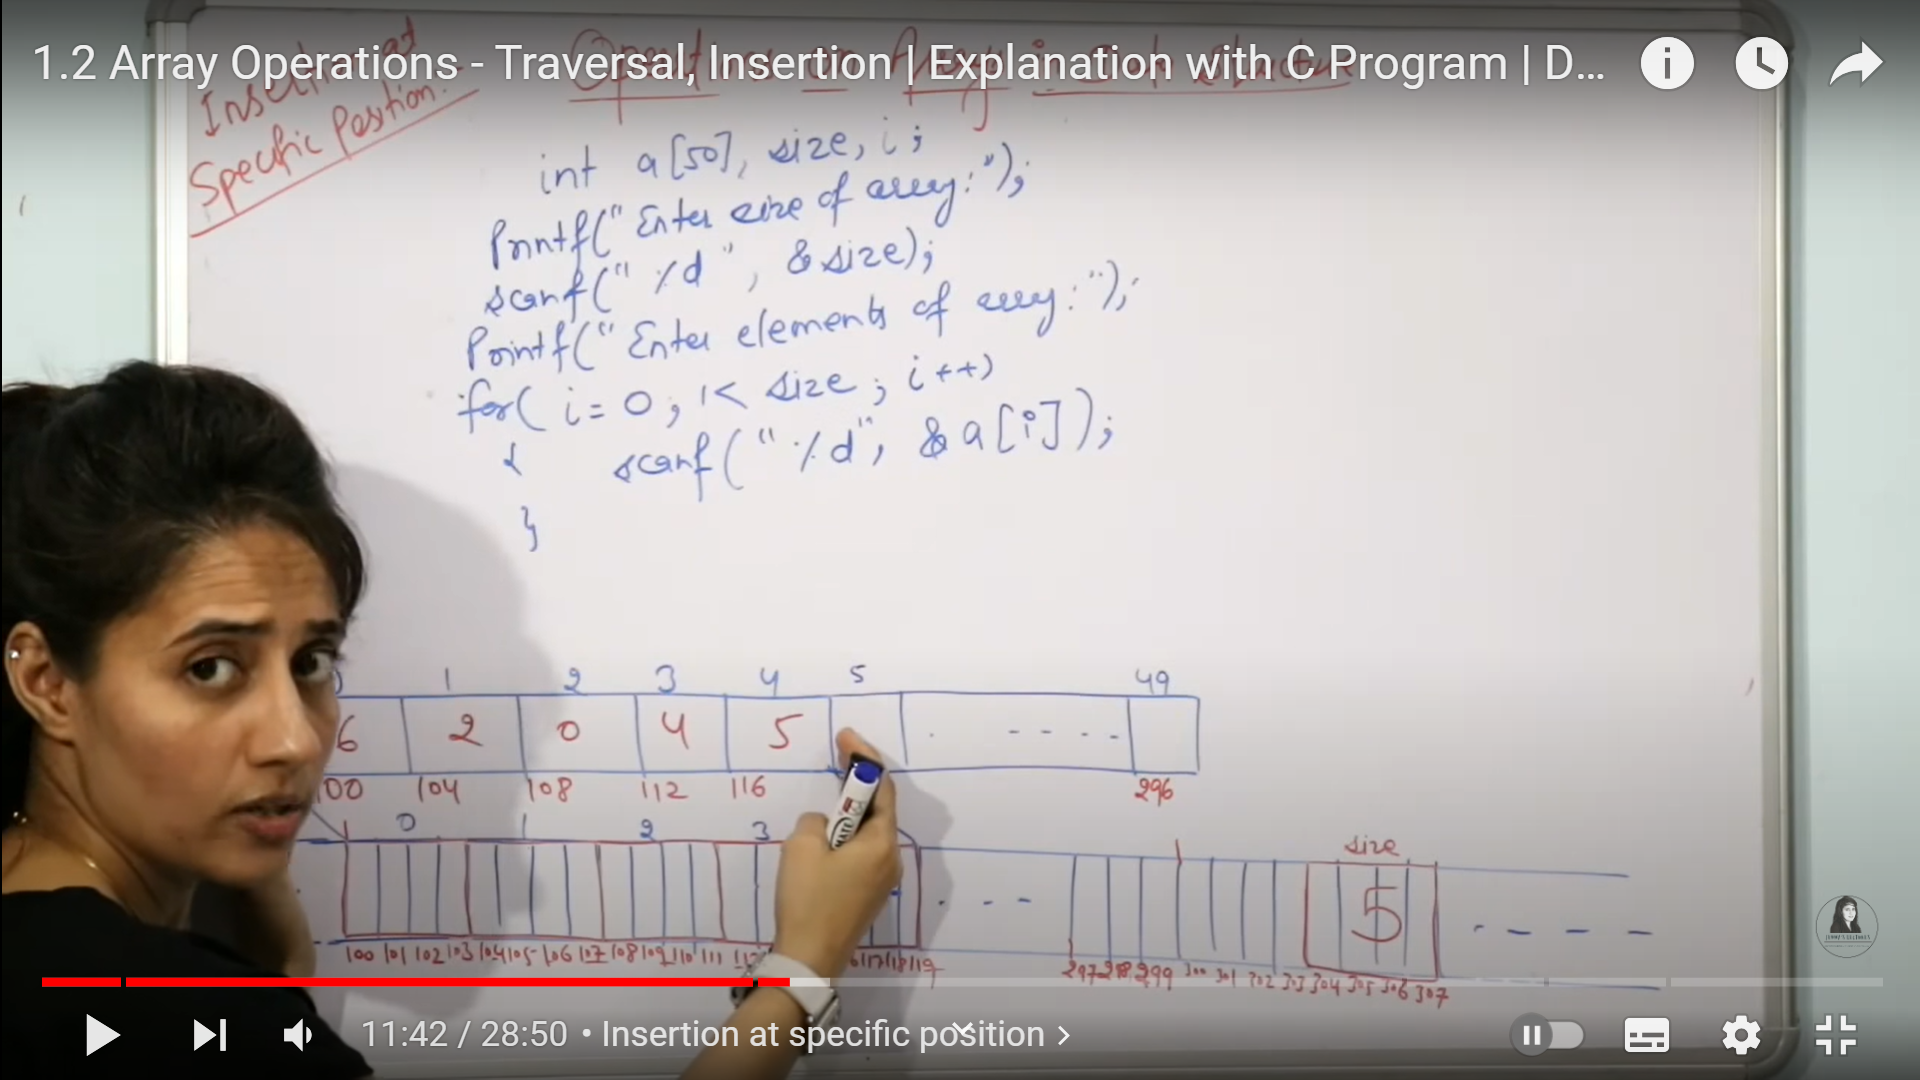 1.2 Array Operations - Traversal, Insertion | Explanation with C Program | D...
Insertion at
Specific Position:-
int a[50], size, i ;
Printf("Enter size of array:");
scanf("%d", &size);
Printf("Enter elements of array:");
for( i = 0 ; i < size ; i++)
{ scanf("%d", &a[i]);
}
1 2 3 4 5 49
6 2 0 4 5 . - - - -
100 104 108 112 116 296
0 1 2 3 size
5
100 101 102 103 104 105 106 107 108 109 110 111 117 118 119 297 298 299 300 301 302 303 304 305 306 307
11:42 / 28:50 • Insertion at specific position >